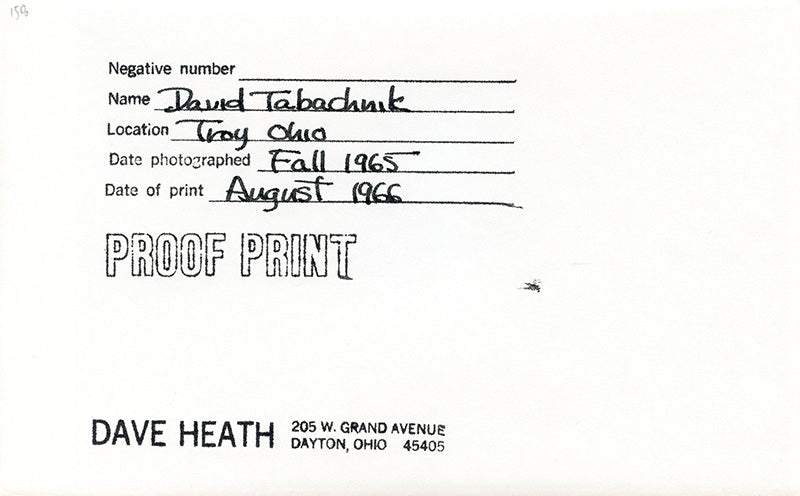 Negative number
Name David Tabachnik
Location Troy Ohio
Date photographed Fall 1965
Date of print August 1966
PROOF PRINT
DAVE HEATH 205 W. GRAND AVENUE
DAYTON, OHIO 45405